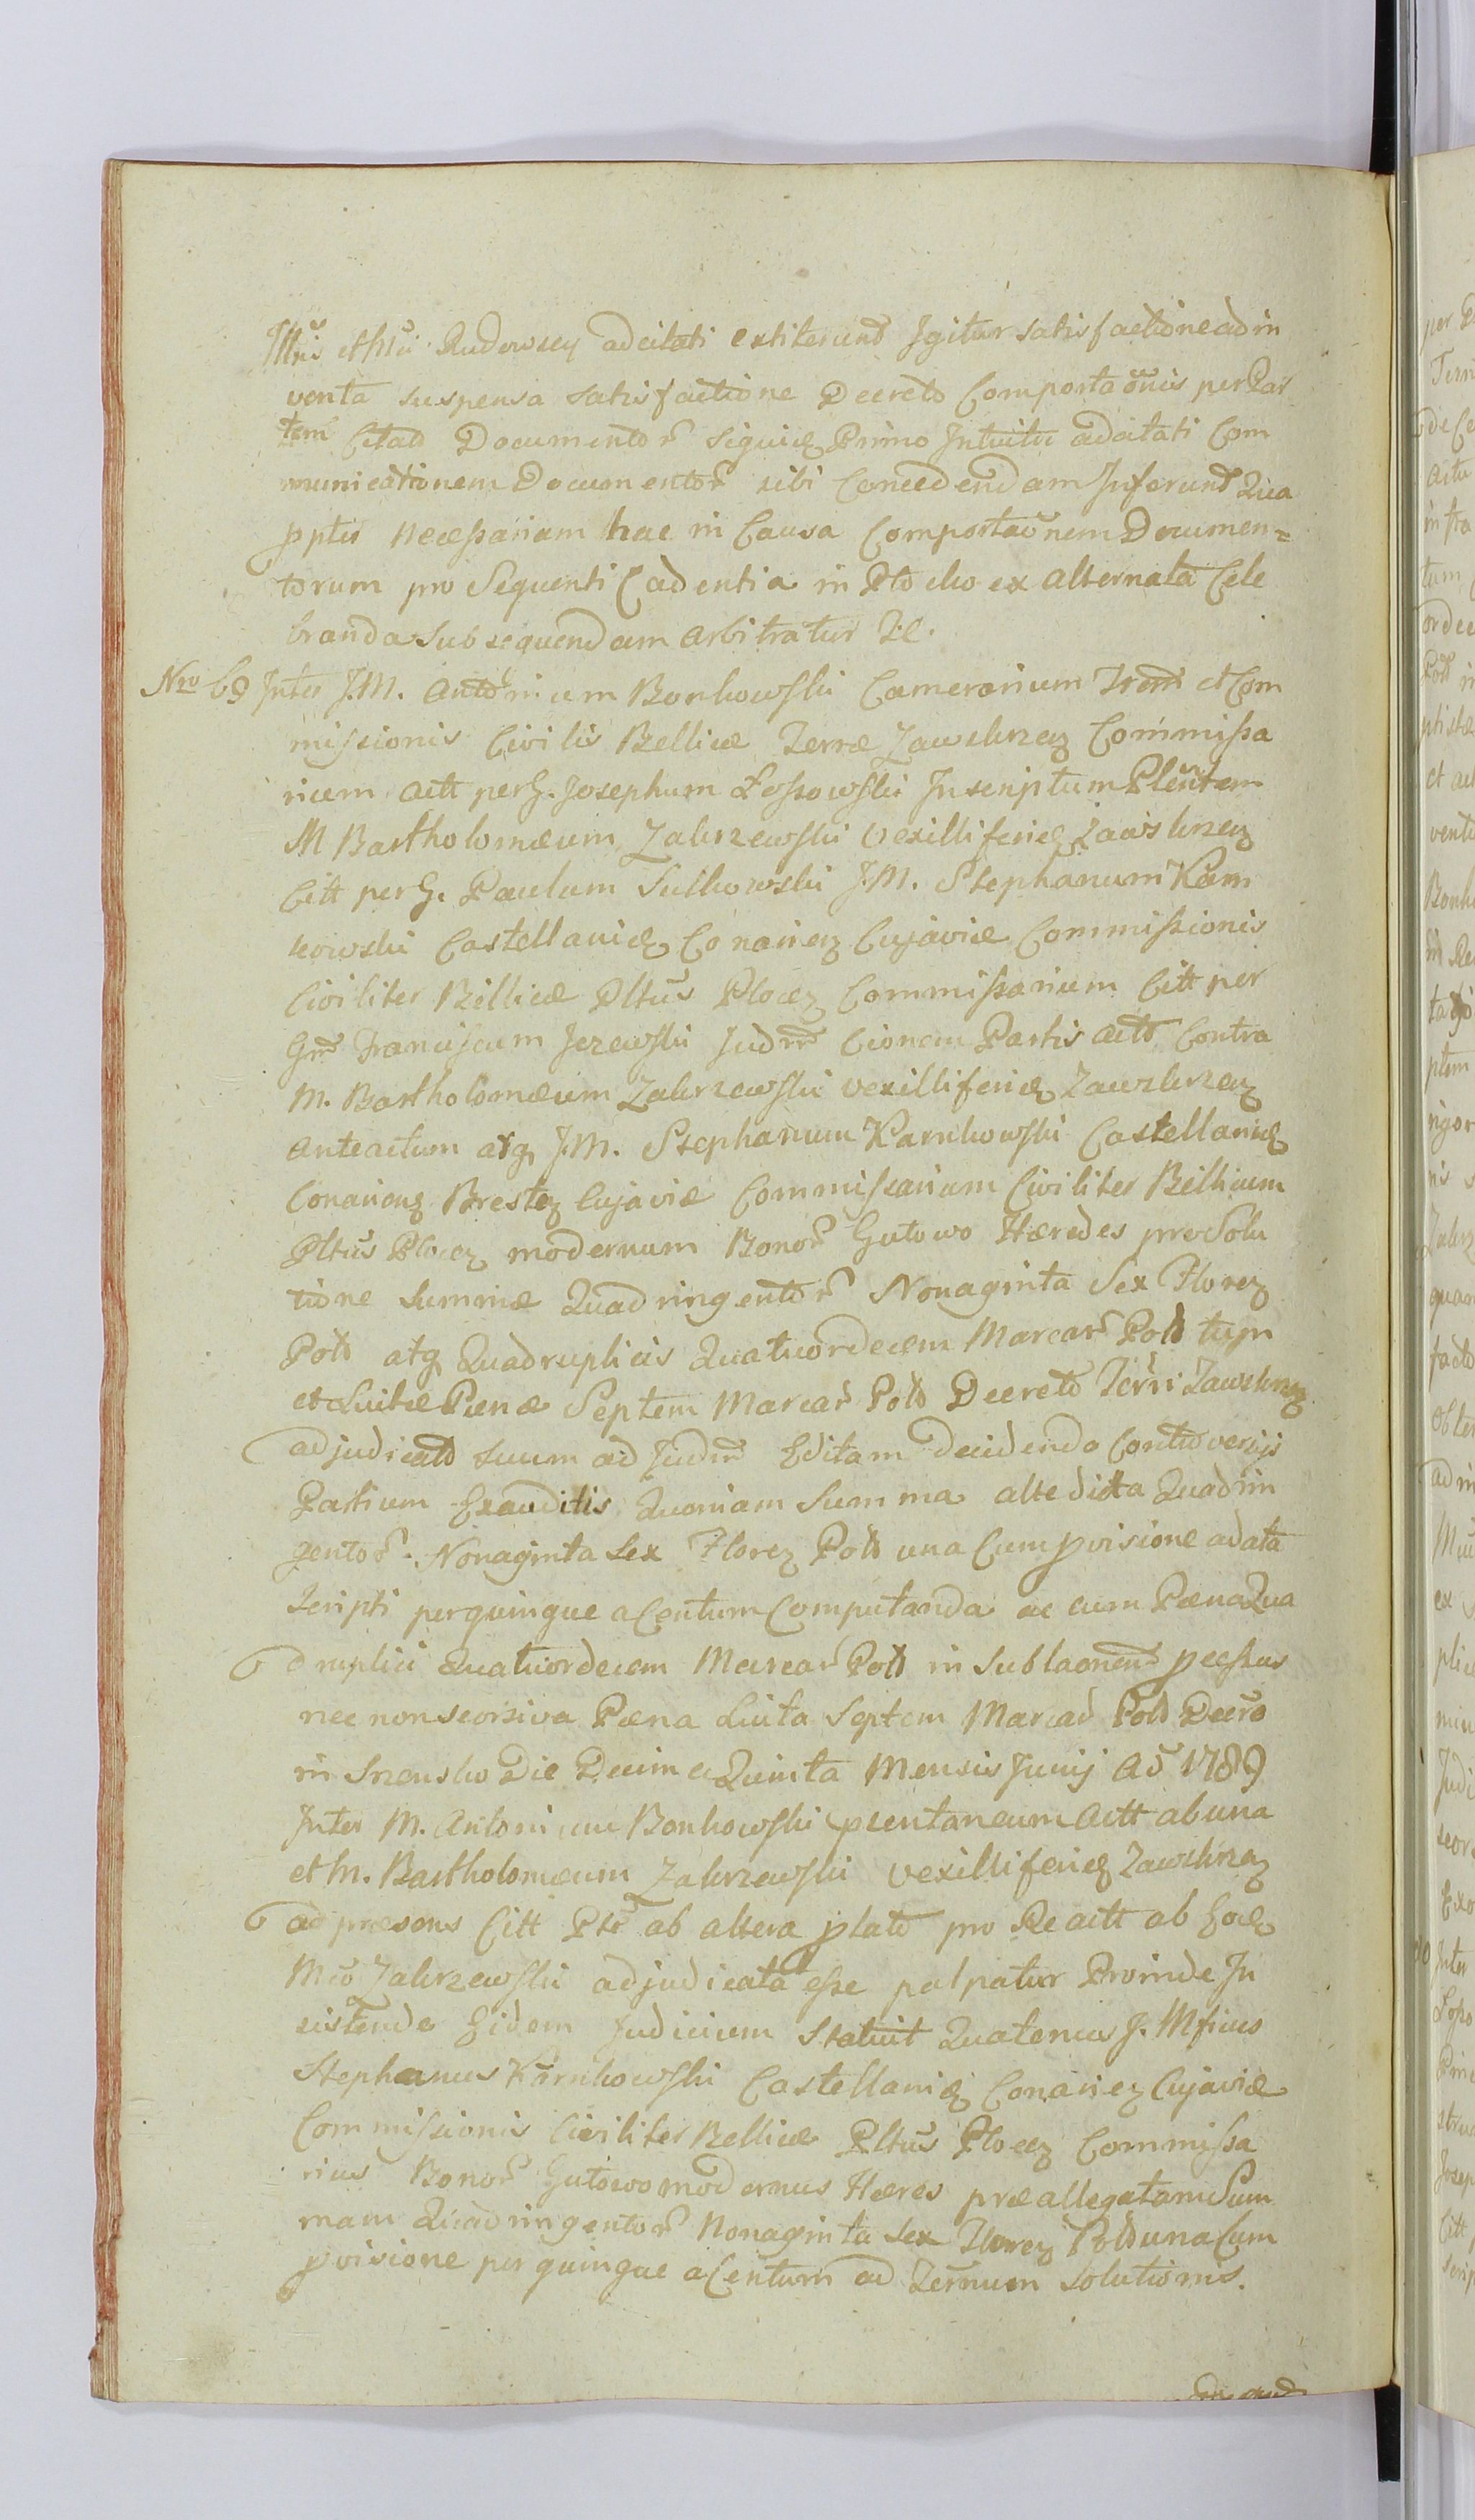 Illris et Mci Rudowscy adcitati extiterunt Igitur satisfactione adin
venta suspensa satisfactione Decreto Comportaōnis per Par
tem Citato Documentor̃ Siquidē Primo Intuitu adcitati Com
municationem Documentor̃ sibi Concedendam Inferunt Qua
pptei Necessariam hac in Causa Comportaōnem Documen=
torum pro Sequenti Cadentia in Płocko ex alternata Cele
branda Subsequendam arbitratur Ic.
Nro 69 Inter J.M. Antonium Bonkowski Camerarium et Com
missionis Civilis Bellicæ Terræ Zawskrzen Commissa
rium Actt per G. Josephum Łossowski Inscriptum Plentem
M Bartholomæum Zakrzewski Vexilliferidę Zawskrzen
Citt per G. Paulum Sulkowski J.M. Stephanum Karn
kowski Castellanidę Conarien Cujaviæ Commissionis
Civiliter Bellicæ Pltūs Plocen Commissarium Citt per
Gm Franciscum Jezewski Judm Cionem Partis Acto Contra
M. Bartholomæum Zakrzewski vexilliferidę Zawskrzen
anteactum atq J.M. Stephanum Karnkowski Castellanidę
Conarien Bresten Cujaviæ Commissarium Civiliter Bellicum
Pltūs Plocen modernum Bonor̃ Gutowo Hæredes pro Solu
tione Summæ Quadringentor̃ Nonaginta Sex Floren
Polo atq Quadruplicis Quatuordecem Marcar̃ Polo
et Luitæ Pænæ Septem Marcar̃ Polo Decreto Terri Zawskrzen
adjudicato suum ad Judm Editam decidendo Controversijs
Partium Exauditis Quoniam Summa altedicta Quadrin
gentor̃ Nonaginta Sex Floren Polo una Cum pvisione a data
Scripti per quinque a Centum Computanda ac cum Pæna Qua
druplici Quatuordecem Marcar̃ Polo in Sublaonem pcessus
nec non seorsiva Pæna Luita Septem Marcar̃ Polo Decro
in Srzensko Die Decima Quinta Mensis Junij Ao 1789
Inter M. Antonium Bonkowski psentaneum Actt ab una
et M. Bartholomæum Zakrzewski vexilliferidę Zawskrzen
ad præsens Citt Pte ab altera plato pro Re actt ab Eodę
Mco Zakrzewski adjudicata esse palpatur Proinde In
sistendo Eidem Judicium Statuit Quatenus J. Mficus
Stephanus Karnkowski Castellanidę Conarien Cujaviæ
Commissionis Civiliter Bellicæ Pltūs Plocen Commissa
rius Bonor̃ Gutowo modernus Hæres præallegatam Sum
mam Quadringentor̃ Nonaginta Sex Floren Polo una Cum
pvisione per quinque a Centum ad Termum Solutionis.